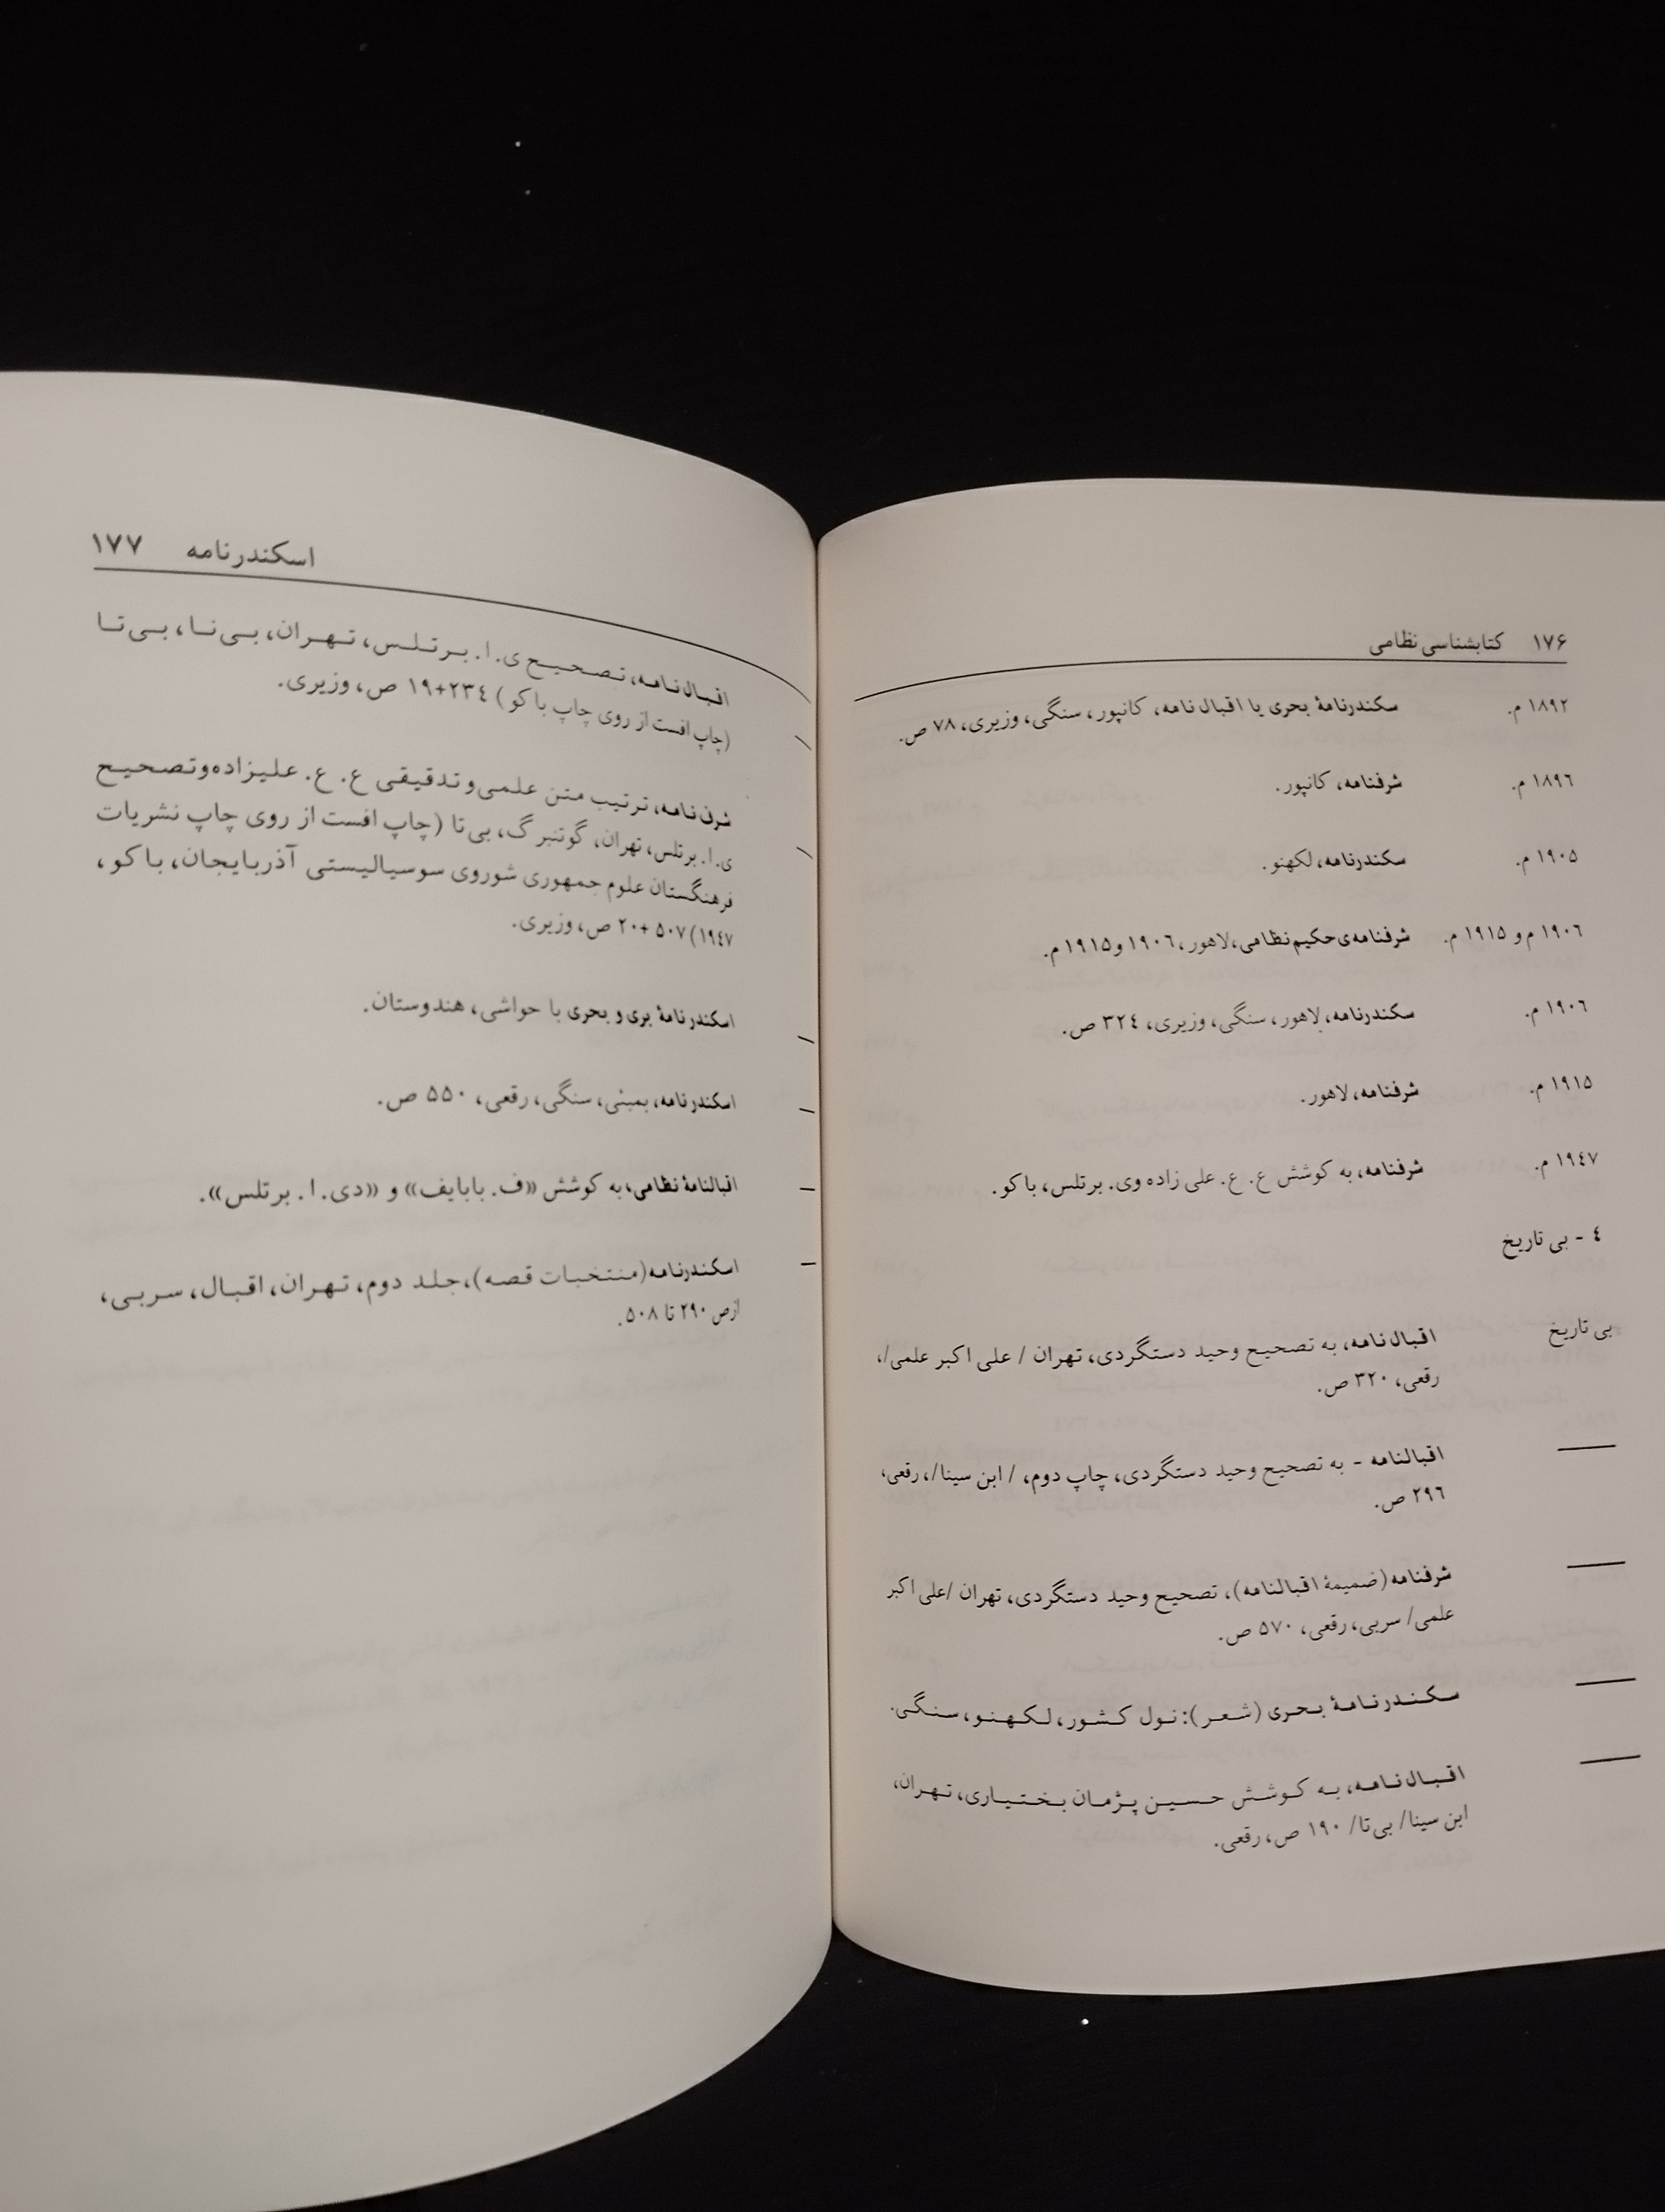 ۱۷۶ کتابشناسی نظامی
۱۸۹۲ م. سکندرنامهٔ بحری یا اقبال نامه، کانپور، سنگی، وزیری، ۷۸ ص.
۱۸۹٦ م. شرفنامه، کانپور.
۱۹۰۵ م. سکندرنامه، لکهنو.
۱۹۰٦ م و ۱۹۱۵ م. شرفنامه‌ی حکیم نظامی، لاهور، ۱۹۰٦ و ۱۹۱۵ م.
۱۹۰٦ م. سکندرنامه، لاهور، سنگی، وزیری، ۳۲٤ ص.
۱۹۱۵ م. شرفنامه، لاهور.
۱۹٤۷ م. شرفنامه، به کوشش ع. ع. علی زاده وی. برتلس، باکو.
٤ - بی تاریخ
بی تاریخ اقبال نامه، به تصحیح وحید دستگردی، تهران / علی اکبر علمی/،
رقعی، ۳۲۰ ص.
—— اقبالنامه - به تصحیح وحید دستگردی، چاپ دوم، / ابن سینا/، رقعی،
۲۹٦ ص.
—— شرفنامه (ضمیمهٔ اقبالنامه)، تصحیح وحید دستگردی، تهران /علی اکبر
علمی/ سربی، رقعی، ۵۷۰ ص.
—— سکندرنامهٔ بحری (شعر): نول کشور، لکهنو، سنگی.
—— اقبال نامه، به کوشش حسین پژمان بختیاری، تهران،
ابن سینا/ بی‌تا/ ۱۹۰ ص، رقعی.
اسکندرنامه ۱۷۷
— اقبال نامه، تصحیح ی. ا. برتلس، تهران، بی‌نا، بی‌تا
(چاپ افست از روی چاپ باکو) ۲۳٤+۱۹ ص، وزیری.
— شرف نامه، ترتیب متن علمی و تدقیقی ع. ع. علیزاده و تصحیح
ی. ا. برتلس، تهران، گوتنبرگ، بی‌تا (چاپ افست از روی چاپ نشریات
فرهنگستان علوم جمهوری شوروی سوسیالیستی آذربایجان، باکو،
۱۹٤۷) ۵۰۷ +۲۰ ص، وزیری.
— اسکندرنامهٔ بری و بحری با حواشی، هندوستان.
— اسکندرنامه، بمبئی، سنگی، رقعی، ۵۵۰ ص.
— اقبالنامهٔ نظامی، به کوشش «ف. بابایف» و «دی. ا. برتلس».
— اسکندرنامه (منتخبات قصه)، جلد دوم، تهران، اقبال، سربی،
ازص ۲۹۰ تا ۵۰۸.